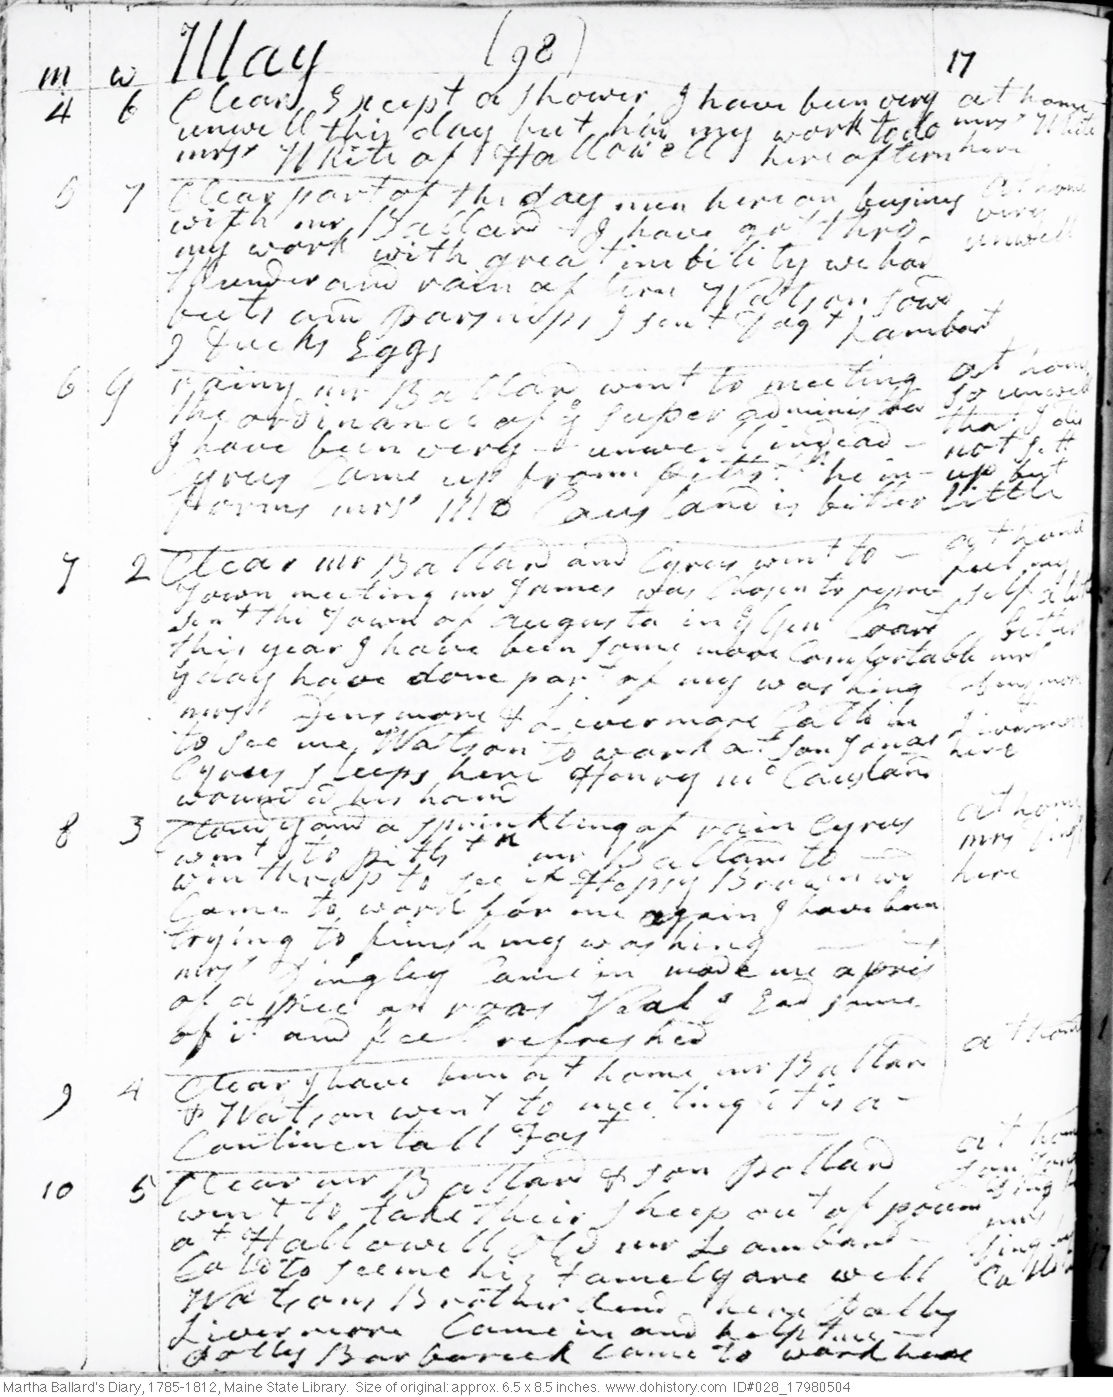 m w May (98) 17
4 6 Clear, Except a Shower I have been very at home
unwell this day but had my work to do mrss White
mrss White of Hallowell here aftern here
5 7 Clear part of the day men here on business at home
with mr Ballard I have got thro very
my work with great imbility we had unwell
thunder and rain aftern Watson sow
beets and parsnips I sent Lambart
9 Ducks Eggs
6 G rainy mr Ballard went to meeting at home
the ordinance of ye Super administrd so unwell
I have been very unwell indead that I did
Cyrus Came up from Pitts he in not sett up but
forms mrss Mc Causland is better little
7 2 Clear mr Ballard and Cyrus went to at home
Town meeting mr James was Chosen to repre feel my
sent the Town of Augusta in ye Gen Coart self a little better
this year I have been some more Comfortable mrss
ye day have done part of my washing Densmore
mrss Densmore & Livermore Calld in Livermore
to see me Watson to work at son Jonas here
Cyrus sleeps here Henry mc Causland
wound d his hand
8 3 Cloudy and a sprinkling of rain Cyrus at home
went to Pittstn mr Ballard to mrss
winthrop to see if Hepsy Brown wd here
Come to work for me again I have been
trying to finish my washing
mrss Dingley Came in made me a pris
of a piec of roas Veal I Ead some
of it and feel refreshed
9 4 Clear I have been at home mr Ballard at home
& Watson went to meeting it is a
Continentall Fast
10 5 Clear mr Ballard & son Pollard at home
went to take their sheep out of poun
at Hallowell Old mr Lambard
Calld to see me his Famely are well Calld
Watsons Brother here Dolly
Livermore Came in and helpt me
Dolly Barbarick Came to work here